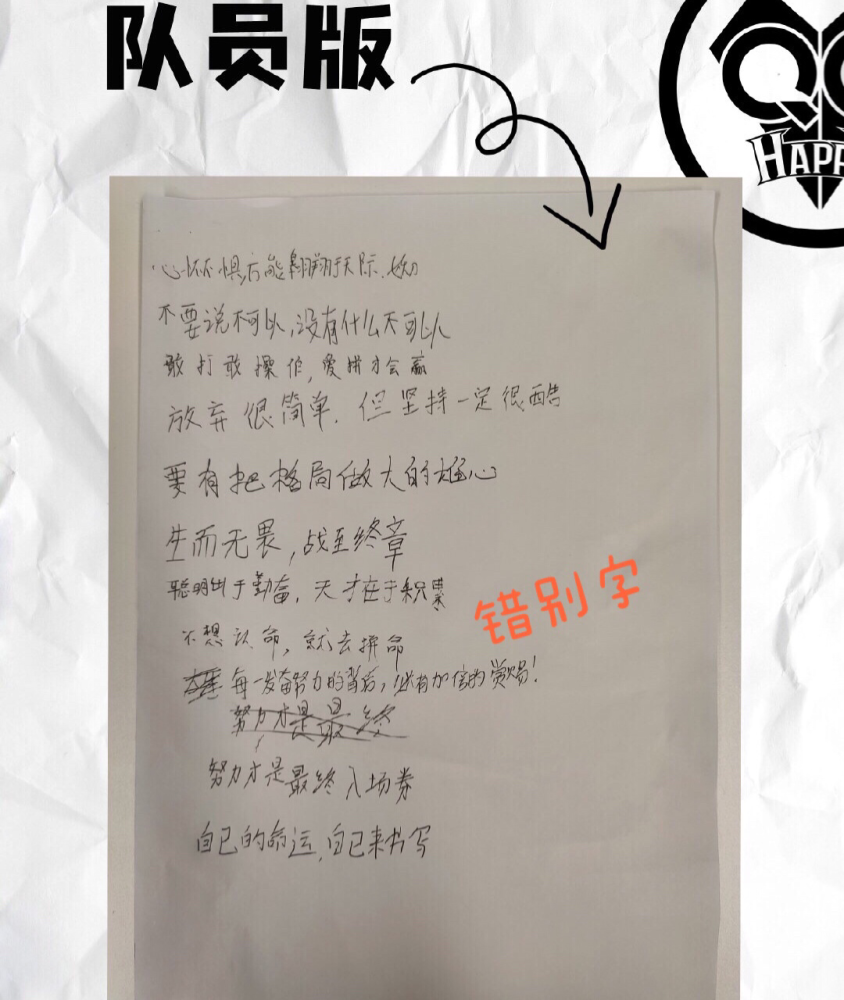 队员版
HAPP
心怀不惧,方能翱翔于天际.
不要说不可以,没有什么不可以
敢打敢操作,爱拼才会赢
放弃很简单.但坚持一定很酷
要有把格局做大的雄心
生而无畏,战至终章
聪明出于勤奋,天才在于积累
错别字
不想认命,就去拼命
每一发奋努力的背后,必有加倍的赏赐!
努力才是最终
努力才是最终入场券
自己的命运,自己来书写